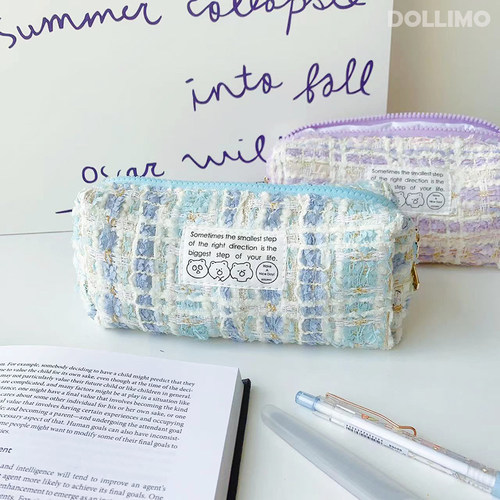 DOLLIMO
Summer collapse
into fall
oscar wil
Sometimes the smallest step
of the right direction is the
biggest step of your life.
Sometimes the smallest step
of the right direction is the
biggest step of your life.
For example, somebody deciding to have a child might predict that they
to value the child for its own sake, even though at the time of the deci-
may not particularly value their future child or like children in general.
are complicated, and many factors might be at play in a situation like
one might have a final value that involves becoming the kind
cares about some other individual for his or her own sake, or one
that involves having certain experiences and occupying
and becoming a parent—and undergoing the attendant
necessary aspect of that. Human goals can also have inconsist-
some people might want to modify some of their final goals to
ment
and intelligence will tend to improve an agent's
agent more likely to achieve its final goals. One
enhancement to emerge as an